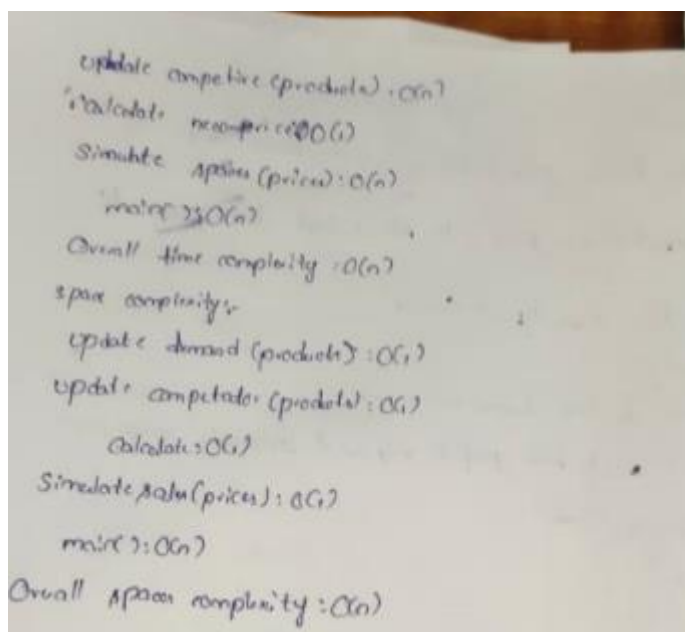 update competire (products) : O(n)
calculate O(1)
Simulate (prices) : O(n)
main() : O(n)
Overall time complexity : O(n)
space complexity :-
update demand (products) : O(1)
update competador (products) : O(1)
Calculate : O(1)
Simulate sales (prices) : O(1)
main() : O(n)
Overall spaces complexity : O(n)